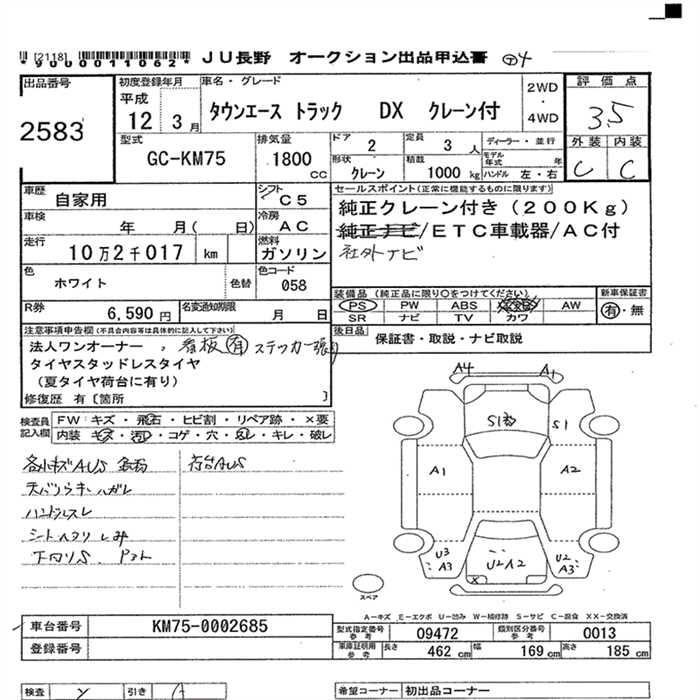 [2118]
*9000011062*
JU長野 オークション出品申込書
出品番号
2583
初度登録年月
平成
12 3月
車名・グレード
タウンエース トラック DX クレーン付
2WD
・
4WD
評価点
3.5
外装 内装
C C
型式
GC-KM75
排気量
1800
CC
ドア 2
定員 3 人
ディーラー・並行
形状 クレーン
積載 1000 kg
モデル年式 年
ハンドル 左・右
車歴 自家用
シフト C5
車検 年 月( 日)
冷房 AC
走行 10万2千017 km
燃料 ガソリン
色 ホワイト
色替
色コード 058
R券 6,590円
名変通知期限 月 日
セールスポイント(正常に機能するものに限ります)
純正クレーン付き(200Kg)
純正ナビ/ETC車載器/AC付
社外ナビ
装備品(純正品に限り○をつけてください)
PS PW ABS AW
SR ナビ TV カワ
新車保証書
有・無
後日品 保証書・取説・ナビ取説
注意事項申告欄(不具合内容等は具体的に記入して下さい)
法人ワンオーナー、看板有 ステッカー張り
タイヤスタッドレスタイヤ
(夏タイヤ荷台に有り)
修復歴 有〔箇所 〕
検査員記入欄
FW キズ・飛石・ヒビ割・リペア跡・×要
内装 キズ・汚レ・コゲ・穴・ネレ・キレ・破レ
各小キズAUS
荷台AUS
ハンドルスレ
下回りS
A4 A1
S1 S1
A1 A2
U3 A3 U2A2 U2 A3
X
スペア
A-キズ E-エクボ U-凹み W-補修跡 S-サビ C-腐食 XX-交換済
車台番号 KM75-0002685
登録番号
型式指定番号 参考 09472
類別区分番号 参考 0013
車庫証明用 参考 長さ 462 cm 幅 169 cm 高さ 185 cm
検査
引き
希望コーナー 初出品コーナー